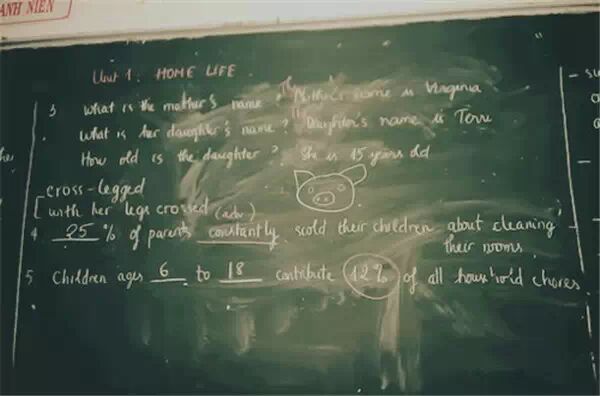 ANH NIÊN
Unit 1: HOME LIFE
3 What is the mother's name? The Mother's name is Virginia
What is her daughter's name? The Daughter's name is Terri
How old is the daughter? She is 15 years old
[cross-legged
with her legs crossed (adv)
4 25 % of parents constantly scold their children about cleaning
their rooms
5 Children ages 6 to 18 contribute 12% of all household chores